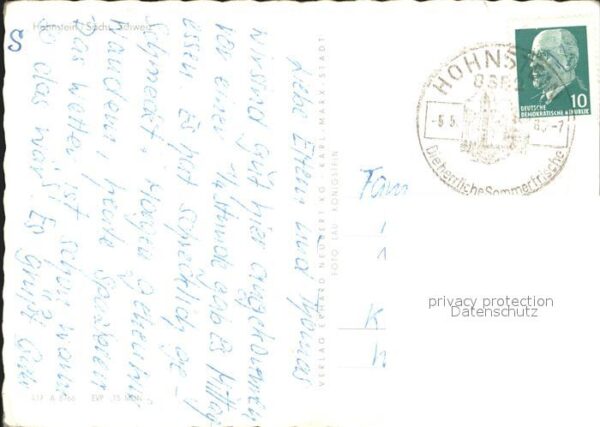 Hohnstein / Sächs. Schweiz
Liebe Eltern und
wir sind gut hier angekommen
vor einer 1/4 Stunde gab es Mittag
essen. Es hat schrecklich ge-
schmeckt. Morgen gehen wir
wandern, heute
Das Wetter ist schön warm
so das wär's! Es grüßt Euch
S
VERLAG ERHARD NEUBERT KG · KARL-MARX-STADT
FOTO LAU, KÖNIGSTEIN
EVP -.15 MDN
HOHNSTEIN
8352
- 5. 5.
-7
Die herrliche Sommerfrische
DEUTSCHE
DEMOKRATISCHE REPUBLIK
10
Fam
K
privacy protection
Datenschutz